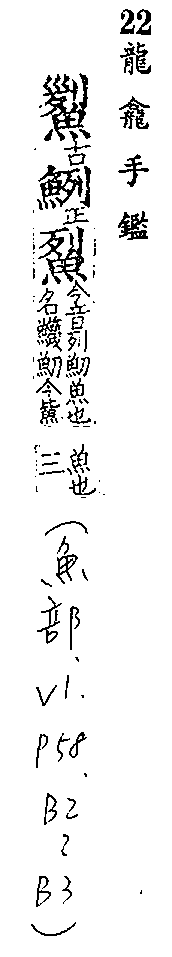 22 龍龕手鑑
古鮤正今音列魛魚也
名鱴魛今鮆
魚也
三
(魚部、V1. P58、B2~B3)